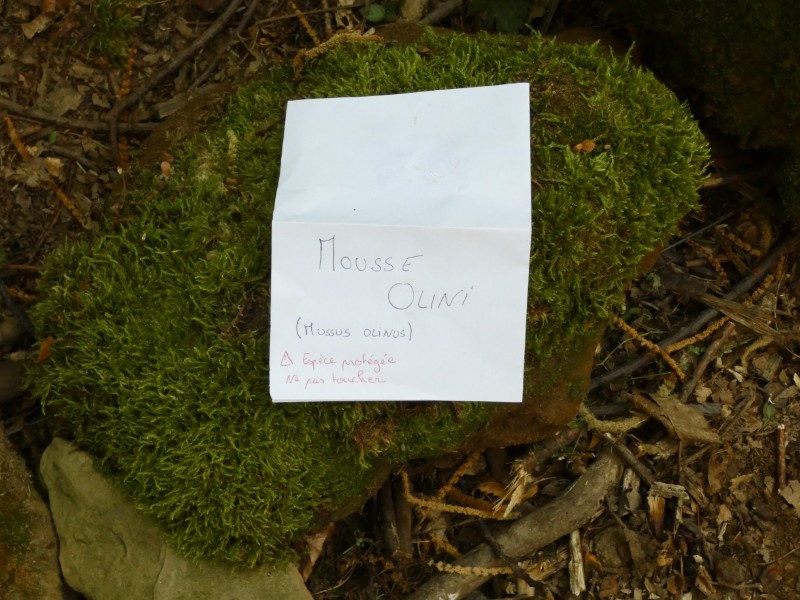 MOUSSE
OLINI
(MUSSUS OLINUS)
⚠ Espèce protégée
Ne pas toucher